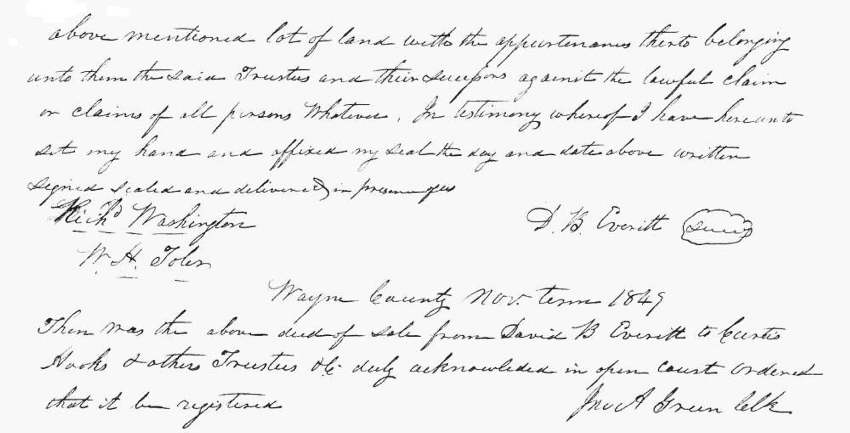 above mentioned lot of land with the appurtenances therto belonging
unto them the said Trustees and their sucessors against the lawful claim
or claims of all persons whatever. In testimony whereof I have hereunto
set my hand and affixed my seal the day and date above written
signed sealed and delivered in presence of us
Richd Washington D. B. Everitt
W. H. Toler
Wayne County Nov. term 1849
Then was the above deed of sale from David B Everitt to Curtis
Hooks & others Trustees &c duly acknowleded in open court ordered
that it be registered Jno A Green Clk